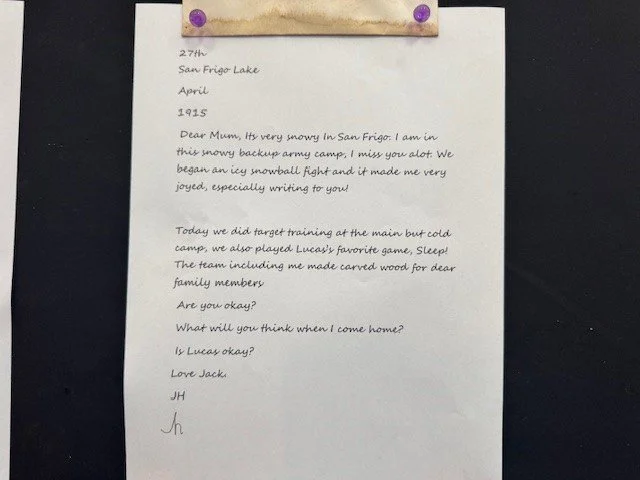 27th
San Frigo Lake
April
1915
Dear Mum, Its very snowy In San Frigo. I am in
this snowy backup army camp, I miss you alot. We
began an icy snowball fight and it made me very
joyed, especially writing to you!
Today we did target training at the main but cold
camp, we also played Lucas's favorite game, Sleep!
The team including me made carved wood for dear
family members
Are you okay?
What will you think when I come home?
Is Lucas okay?
Love Jack.
JH
Jh